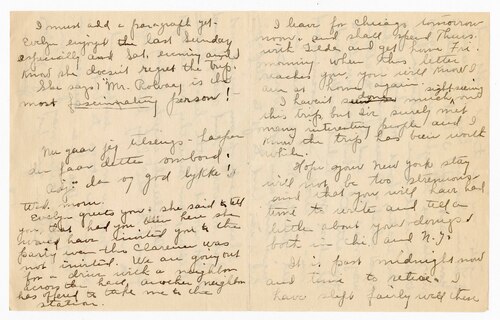 I must add a paragraph yet.
Evelyn enjoyed the last Sunday
especially and Sat. evening and I
know she doesn't regret the trip.
She says "Mr. Rolvaag is the
most fascinating person!"
Nu gaar jeg tilsengs - haaper
du faar dette ombord.
Adjø da og god lykke!
Wed. morn.
Evelyn greets you - she said to tell
you, that had you been here she
would have invited you to the
party even tho Clarence was
not invited. We are going out
for a drive with a neighbor
across the hall, another neighbor
has offered to take me to the
station.
I leave for Chicago tomorrow
morn. and shall spend Thurs.
with and get home Fri.
morning. When this letter
reaches you, you will know I
am at home again.
I haven't seen much sight seeing on
this trip but I've surely met
many interesting people and I
know the trip has been worth
while.
Hope your New York stay
will not be too strenuous
and that you will have had
time to write and tell a
little about your doings
both in Chi and N.Y.
It is past midnight now
and time to retire. I
have slept fairly well these